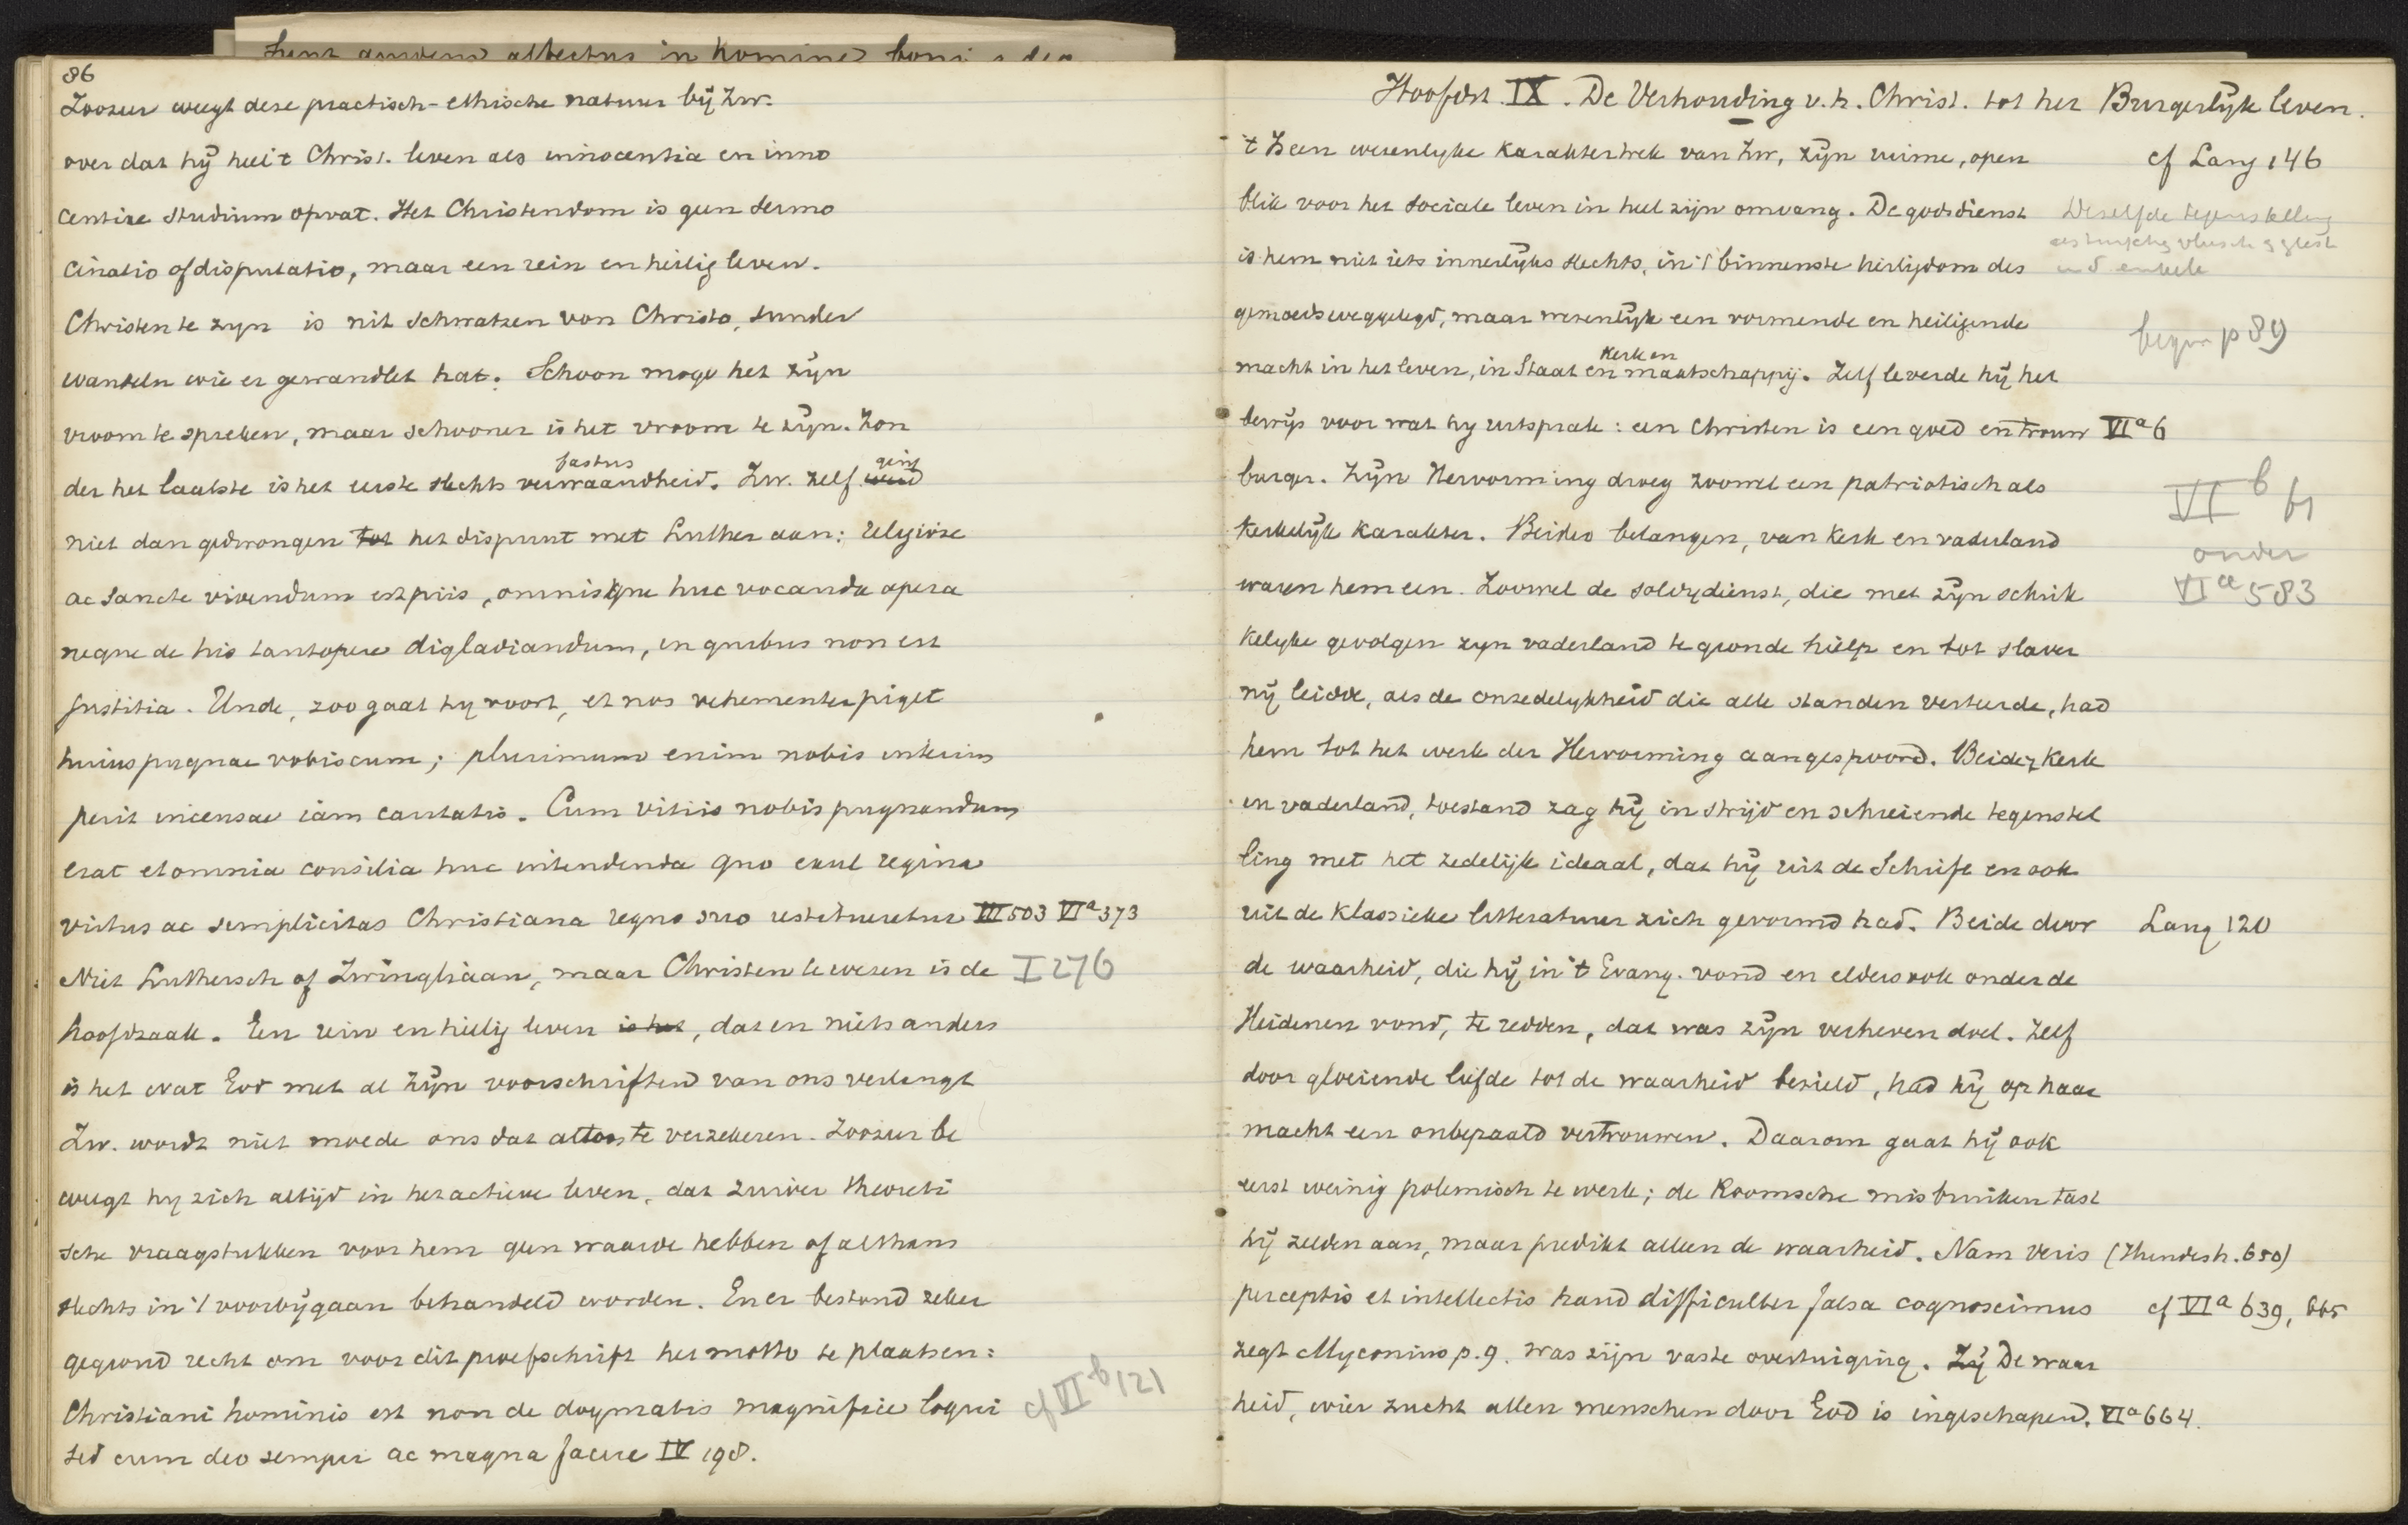 86
Zoozeer weegt deze practisch-ethische natuur bij Zw.
over dat hij heel 't Christ. leven als innocentia en inno
centiae studium opvat. Het Christendom is geen sermo
cinatio of disputatio, maar een rein en heilig leven.
Christen te zyn is nit schwatzen von Christo, sunder
wandeln wie er gewandlet hat. Schoon moge het zijn
vroom te spreken, maar schooner is het vroom te zijn. Zon
fastus ging
der het laatste is het eerste slechts verwaandheid. Zw. zelf
niet dan gedwongen tot het dispuut met Luther aan: religiose
ac sancte vivendum est piis, omnisque huc vocanda opera
neque de his tantopere digladiandum, in quibus non est
justitia. Unde, zoo gaat hy voort, et nos vehementer piget
huius pugnae vobiscum; plurimum enim nobis interim
perit incensae iam caritatis. Cum vitiis nobis pugnandum
erat et omnia consilia huc intendenda quo exul regina
virtus ac simplicitas Christiana regno suo restitueretur III 503 VIa 373
Niet Luthersch of Zwingliaan, maar Christen te wezen is de I 276
hoofdzaak. Een rein en heilig leven is het, dat en niets anders
is het wat God met al zijn voorschriften van ons verlangt
Zw. wordt niet moede ons dat altoos te verzekeren. Zoozeer be
weegt hy zich altijd in het actieve leven, dat zuiver theoreti
sche vraagstukken voor hem geen waarde hebben of althans
slechts in 't voorbijgaan behandeld worden. En er bestond zeker
gegrond recht om voor dit proefschrift het motto te plaatsen:
Christiani hominis est non de dogmatis magnifice loqui cf VIb 121
sed cum deo semper ac magna facere IV 198.
Hoofdst. IX. De Verhouding v. h. Christ. tot het Burgerlijk leven.
't Is een wezenlyke karaktertrek van Zw, zijn ruime, open cf Lang 146
blik voor het sociale leven in heel zijn omvang. De godsdienst Dezelfde tegenstelling
is hem niet iets innerlijks slechts, in 't binnenste heiligdom des
gemoeds weggelegd, maar wezenlijk een vormende en heiligende
begin p 89
kerk en
macht in het leven, in Staat en maatschappij. Zelf leverde hij het
bewijs voor wat hy uitsprak: een Christen is een goed en trouw VIa 6
burger. Zijn Hervorming droeg zoowel een patriotisch als
VIb 61
kerkelijk karakter. Beider belangen, van kerk en vaderland
onder
waren hem een. Zoowel de soldijdienst, die met zijn schrik
VIa 583
kelyke gevolgen zyn vaderland te gronde hielp en tot slaver
nij leidde, als de onzedelykheid die alle standen verteerde, had
hem tot het werk der Hervorming aangespoord. Beider, kerk
en vaderland, toestand zag hij in strijd en schreiende tegenstel
ling met het zedelijk ideaal, dat hij uit de Schrift en ook
uit de klassieke litteratuur zich gevormd had. Beide door Lang 120
de waarheid, die hij in 't Evang. vond en elders ook onder de
Heidenen vond, te redden, dat was zijn verheven doel. Zelf
door gloeiende liefde tot de waarheid bezield, had hij op haar
macht een onbepaald vertrouwen. Daarom gaat hij ook
eerst weinig polemisch te werk; de Roomsche misbruiken tast
hij zelden aan, maar predikt alleen de waarheid. Nam veris (Hundesh. 650)
perceptis et intellectis haud difficulter falsa cognoscimus cf VIa 639, 665
zegt Myconius p. 9. was zijn vaste overtuiging. Zij De waar
heid, wier zucht allen menschen door God is ingeschapen, VIa 664.